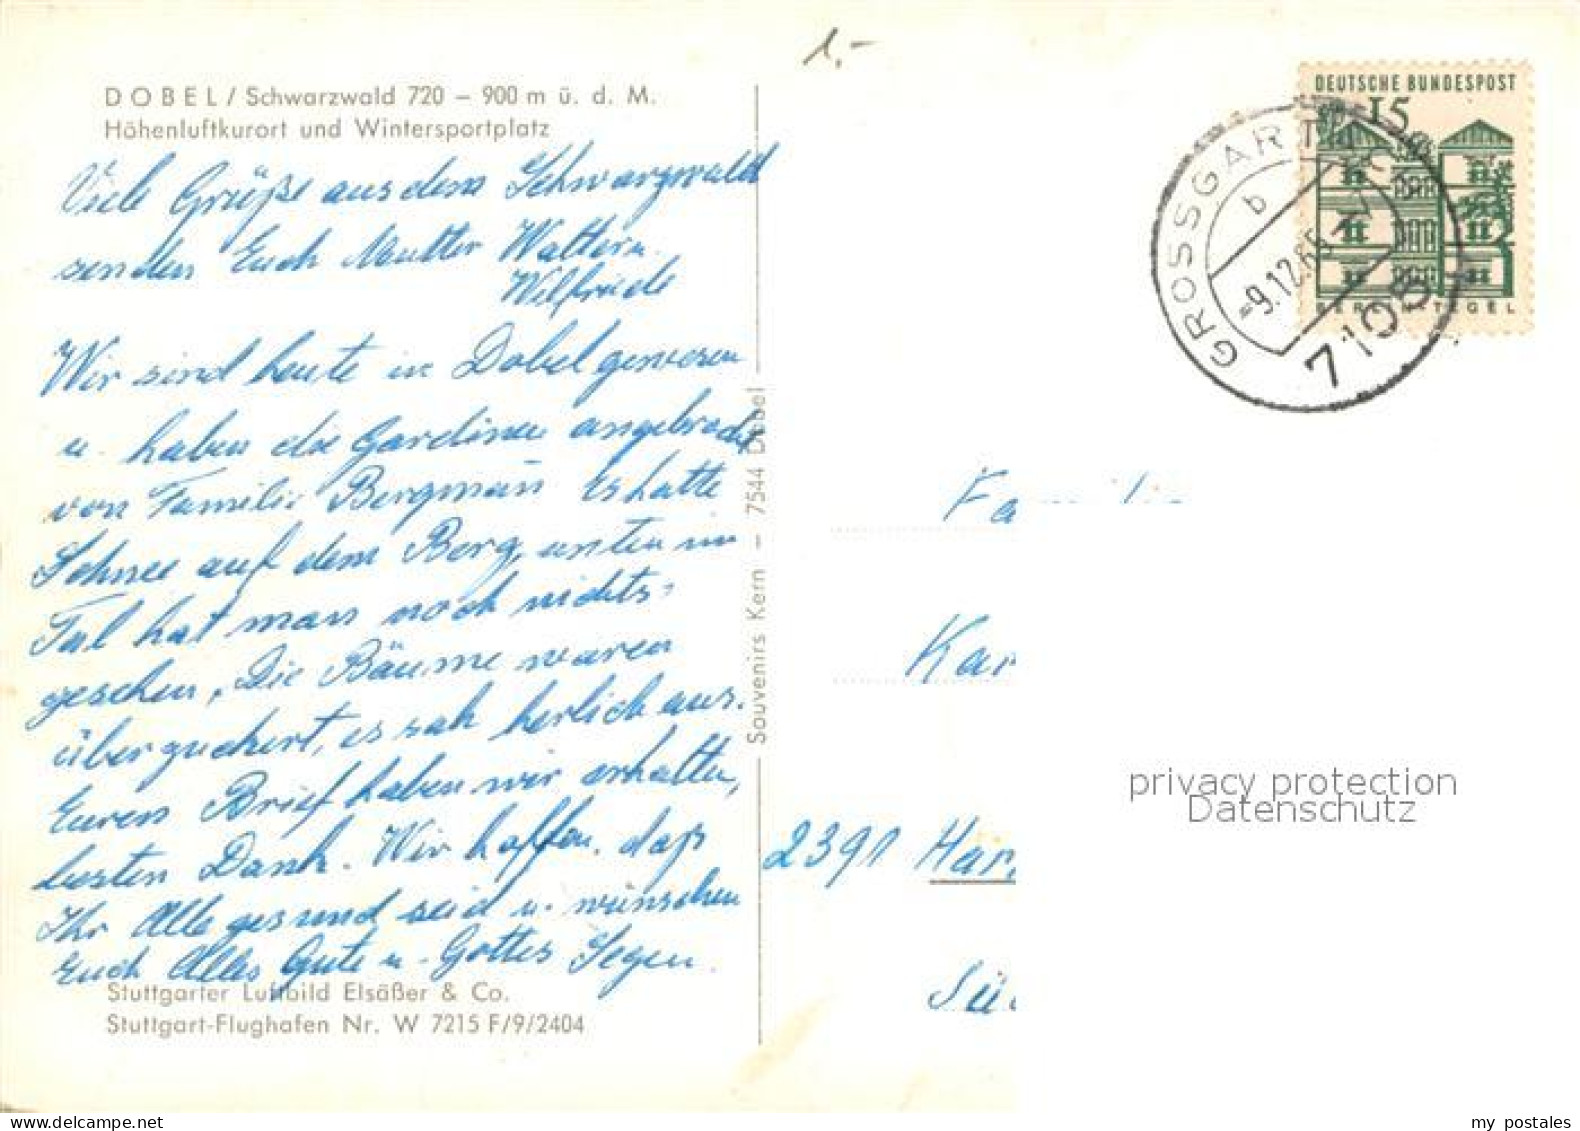 1.-
DOBEL / Schwarzwald 720 – 900 m ü. d. M.
Höhenluftkurort und Wintersportplatz
Viele Grüße aus dem Schwarzwald
senden Euch Mutter Walter u.
Wilfriede
Wir sind heute in Dobel gewesen
u. haben die Gardinen angebracht
von Familie Bergman Es hatte
Schnee auf dem Berg, unten im
Tal hat man noch nichts
gesehen, Die Bäume waren
überzuckert, es sah herlich aus.
Euren Brief haben wir erhalten,
besten Dank. Wir hoffen, daß
Ihr Alle gesund seid u. wünschen
Euch Alles Gute u. Gottes Segen.
Stuttgarter Luftbild Elsäßer & Co.
Stuttgart-Flughafen Nr. W 7215 F/9/2404
Souvenirs Kern – 7544 Dobel
DEUTSCHE BUNDESPOST
15
BERLIN-TEGEL
GROSSGARTACH
b
-9.12.65
7105
Fa
Kar
2391 Har
Sü
privacy protection
Datenschutz
my postales